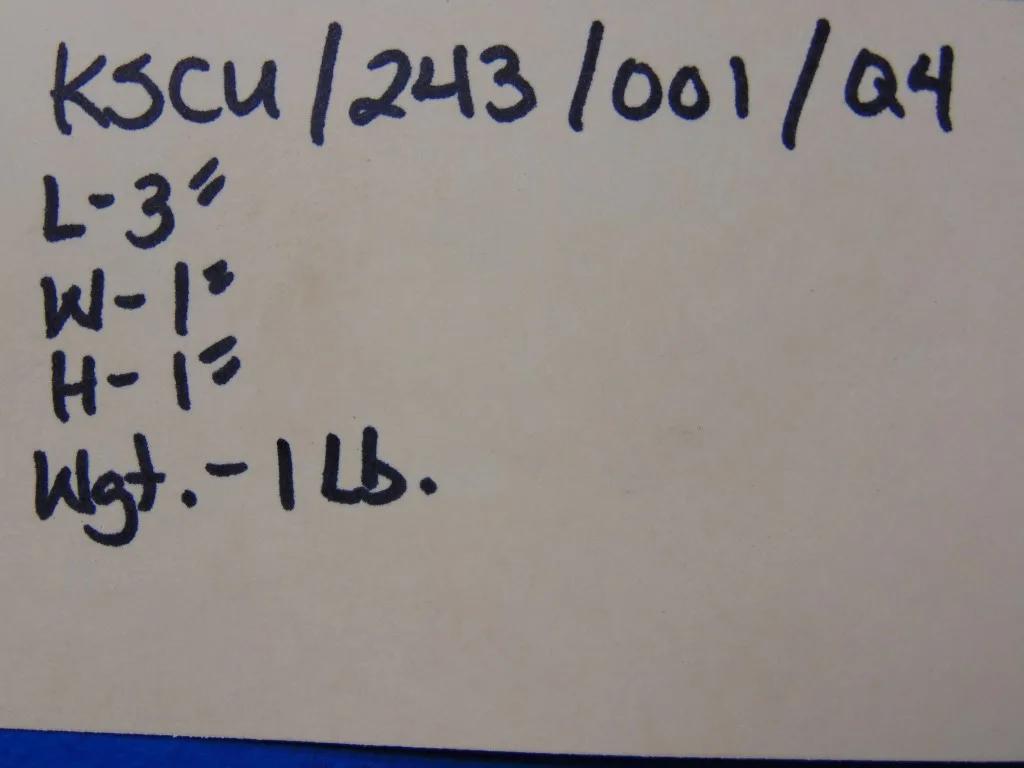 KSCU/243/001/Q4
L-3"
W-1"
H-1"
Wgt.-1 Lb.